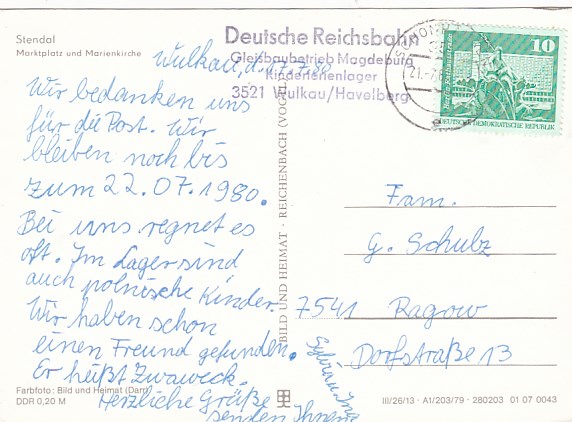 Stendal
Marktplatz und Marienkirche
Deutsche Reichsbahn
Gleisbaubetrieb Magdeburg
Kinderferienlager
3521 Wulkau/Havelberg
10
DEUTSCHE DEMOKRATISCHE REPUBLIK
Wulkau, d. 17.7.80
Wir bedanken uns
für die Post. Wir
bleiben noch bis
zum 22.07.1980.
Bei uns regnet es
oft. Im Lager sind
auch polnische Kinder.
Wir haben schon
einen Freund gefunden.
Er heißt Zwaweck.
Herzliche Grüße
senden Ihnen
Sylvia u.
BILD UND HEIMAT · REICHENBACH (VOGTL)
Fam.
G. Schulz
7541 Ragow
Dorfstraße 13
Farbfoto: Bild und Heimat (Darr)
DDR 0,20 M
III/26/13 · A1/203/79 · 280203 01 07 0043